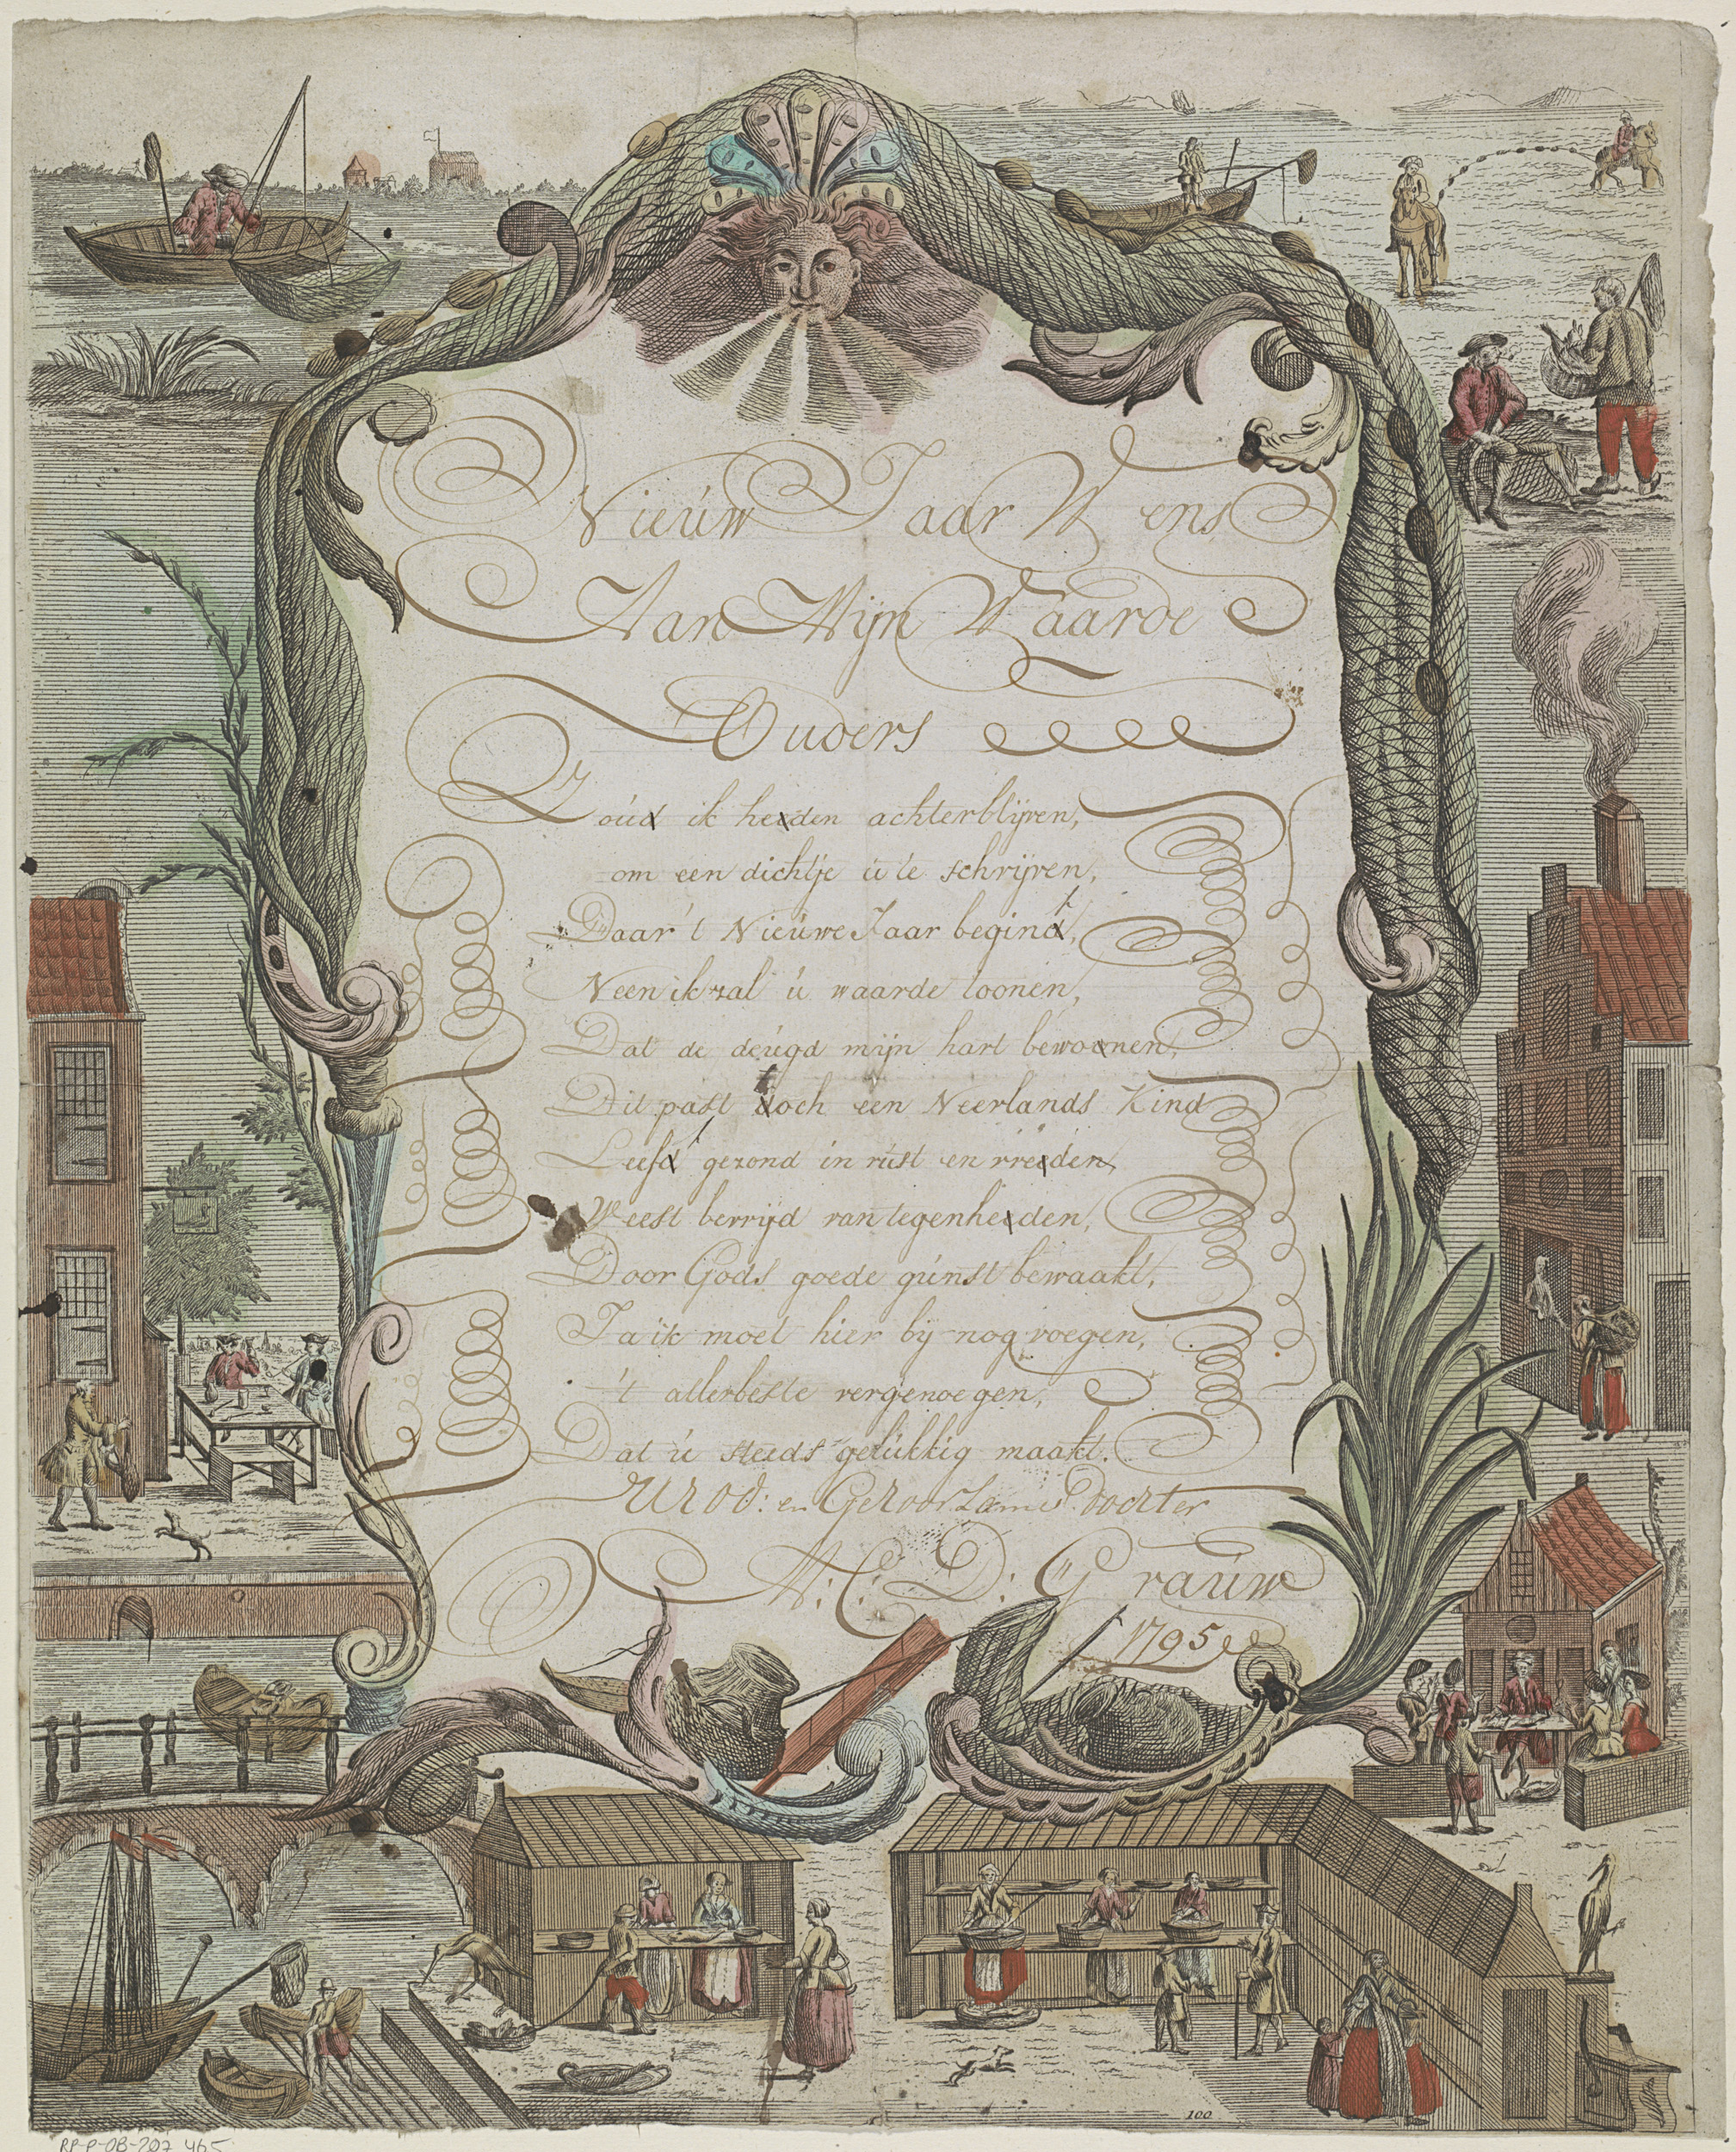 Nieúw Jaar Wens
Aan Mijn Waarde
Ouders
Zoúd ik heeden achterblijven,
om een dichtje ú te schrijven,
Daar 't Nieúwe Jaar begint,
Neen ik zal ú waarde toonen,
Dat de deúgd mijn hart bewoonen,
Dit past toch een Neerlands Kind
Leeft gezond in rúst en vreeden,
Weest bevrijd van tegenheeden,
Door Gods goede gúnst bewaakt,
Ja ik moet hier bij nog voegen,
't allerbeste vergenoegen,
Dat ú steeds gelúkkig maakt.
UEOd: en Gehoorzame Dochter
A: C: D: Graúw
1795
100
RP-P-OB-207.465